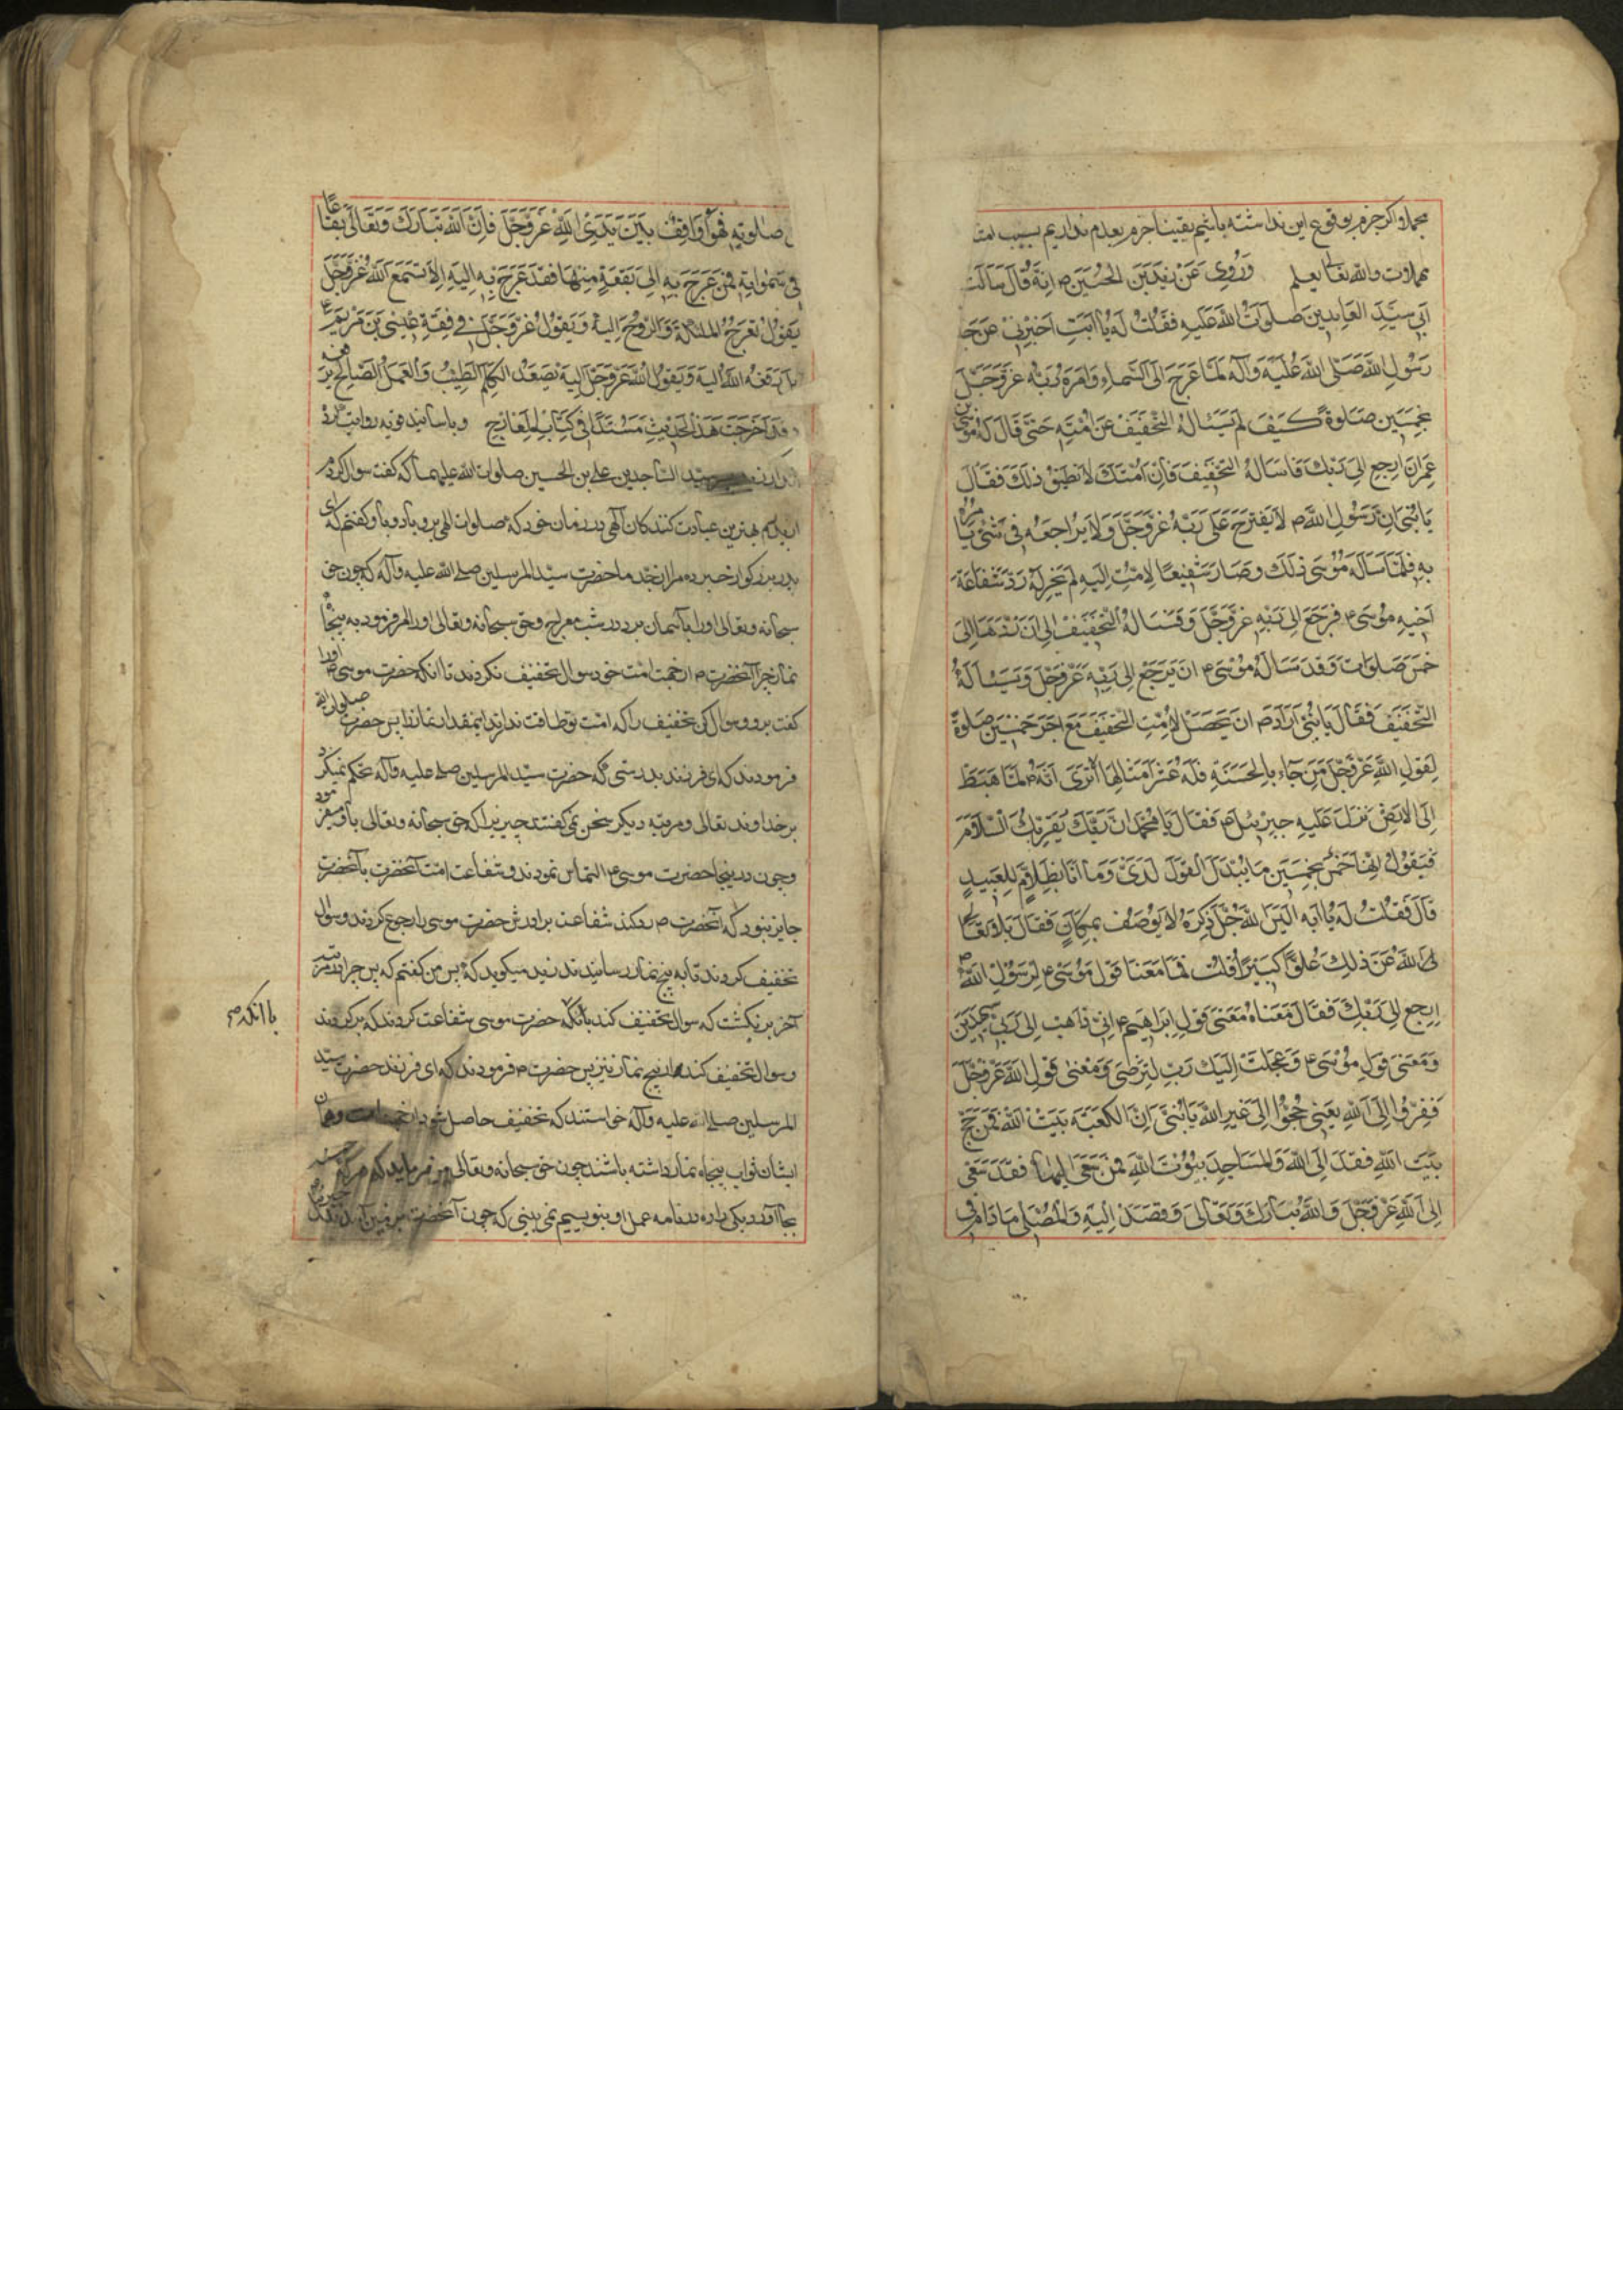 مجملا و اکر جزم بوقوع این نداشته باشیم یقینا جزم بعدم نداریم بسبب
والله تعالی یعلم وَرُوِیَ عَنْ زَیدِ بْنِ الحُسَین ص انه قال سالت
ابی سَیّدَ العَابِدینَ صَلَوَاتُ اللّهِ عَلَیهِ فَقُلْتُ لَهُ یَا اَبَتِ اَخْبِرْنِی عَنْ جَدِّ
رَسُولِ اللّهِ صَلّی اللّهُ عَلَیهِ وَآلِه لَمّا عَرَجَ اِلَی السّمَاءِ وَاَمَرَهُ رَبّهُ عَزّ وَجَلّ
بِخَمسِینَ صَلَوةً کَیفَ لَمْ یَسْئَالهُ التّخفِیفَ عَنْ اُمّتِهِ حَتّی قَالَ لَهُ مُوسَی بْن
عِمرَانَ اِرجِعْ اِلَی رَبّکَ فَاسَالهُ التّخفِیفَ فَاِنّ اُمّتَکَ لَا تُطِیقُ ذلِکَ فَقَالَ
یَا بُنَیّ اِنّ رَسُولَ اللّهِ ص لَا یَقتَرِحُ عَلَی رَبّهِ عَزّ وَجَلّ وَلَا یُرَاجِعُهُ فِی شَئٍ یَامُرُهُ
بِهِ فَلَمّا سَالَهُ مُوسَی ذلِکَ وَصَارَ شَفِیعًا لِاُمّتِهِ اِلَیهِ لَمْ یَجُزْ لَهُ رَدّ شَفَاعَةِ
اَخِیهِ مُوسَی ع فَرَجَعَ اِلَی رَبّهِ عَزّ وَجَلّ وَفَسَالهُ التّخفِیفَ اِلَی اَنْ رَدّهَا اِلَی
خَمسِ صَلَوَاتٍ وَقَد سَالَهُ مُوسَی ع اَنْ یَرجِعَ اِلَی رَبّهِ عَزّ وَجَلّ وَیَسْئَالَهُ
التّخفِیفَ فَقَالَ یَا بُنَیّ اَرَادَ ص اَنْ یَحصُلَ لِاُمّتِهِ التّخفِیفُ مَعَ اَجرِ خَمسِینَ صَلَوةً
لِقَولِ اللّهِ عَزّ وَجَلّ مَنْ جَآءَ بِالحَسَنَةِ فَلَهُ عَشْرُ اَمثَالِهَا اَلَا تَرَی اَنّهُ ص لَمّا هَبَطَ
اِلَی الاَرضِ نَزَلَ عَلَیهِ جِبرَئِیلُ ع فَقَالَ یَا مُحَمّدُ اِنّ رَبّکَ یُقرِئُکَ السّلَامَ
فَیَقُولُ اِنّهَا خَمسٌ بِخَمسِینَ مَا یُبَدّلُ القَولُ لَدَیّ وَمَا اَنَا بِظَلّامٍ لِلعَبِیدِ
قَالَ فَقُلتُ لَهُ یَا اَبَهِ اَلَیسَ اللّهُ جَلّ ذِکرُهُ لَا یُوصَفُ بِمَکَانٍ فَقَالَ بَلَی تَعَالَی
اللّهُ عَنْ ذلِکَ عُلُوًّا کَبِیرًا قُلتُ فَمَا مَعنَا قَولِ مُوسَی ع لِرَسُولِ اللّهِ ص
اِرجِعْ اِلَی رَبّکَ فَقَالَ مَعنَاهُ مَعنَی قَولِ اِبرَاهِیمَ ع اِنّی ذَاهِبٌ اِلَی رَبّی سَیَهدِینِ
وَمَعنَی قَولِ مُوسَی ع وَعَجِلتُ اِلَیکَ رَبّ لِتَرضَی وَمَعنَی قَولِ اللّهِ عَزّ وَجَلّ
فَفِرّوا اِلَی اللّهِ یَعنِی حُجّوا اِلَی غَیرِ اللّهِ یَا بُنَیّ اِنّ الکَعبَةَ بَیتُ اللّهِ فَمَنْ حَجّ
بَیتَ اللّهِ فَقَد اِلَی اللّهِ وَالمَسَاجِدَ بُیُوتُ اللّهِ فَمَنْ سَعَی اِلَیهَا فَقَد سَعَی
اِلَی اللّهِ عَزّ وَجَلّ وَاللّهُ تَبَارَکَ وَتَعَالَی وَقَصَدَ اِلَیهِ وَالمُصَلّی مَا دَامَ فِی
صَلَوتِهِ فَهُوَ وَاقِفٌ بَینَ یَدَیِ اللّهِ عَزّ وَجَلّ فَاِنّ اللّهَ تَبَارَکَ وَتَعَالَی بِقَاعًا
فِی سَمَوَاتِهِ فَمَنْ عَرَجَ بِهِ اِلَی بُقعَةٍ مِنهَا فَقَد عَرَجَ بِهِ اِلَیهِ اَلَا تَسمَعُ اللّهَ عَزّ وَجَلّ
یَقُولُ تَعرُجُ المَلئِکَةُ وَالرّوحُ اِلَیهِ وَیَقُولُ عَزّ وَجَلّ فِی قِصّةِ عِیسَی بْنِ مَریَمَ ع
بَل رَفَعَهُ اللّهُ اِلَیهِ وَیَقُولُ اللّهُ عَزّ وَجَلّ اِلَیهِ یَصعَدُ الکَلِمُ الطّیّبُ وَالعَمَلُ الصّالِحُ یَرفَعُهُ
وَقَد اَخرَجتُ هَذَا الحَدِیثَ مُسنَدًا فِی کِتَابِ المَعَارِجِ و باسانید قویه روایت
سید الساجدین علی بن الحسین صلوات الله علیهما که گفت سوال کردم
از پدرم بهترین عبادت کنندکان الهی در زمان خود که صلوات الهی برو باد و باو کفتم که ای
پدر بزرکوار خبر ده مرا از جد ما حضرت سید المرسلین صلی الله علیه وآله که چون حق
سبحانه وتعالی اورا باسمان برد در شب معراج و حق سبحانه وتعالی اورا امر فرمود به پنجاه
نماز چرا آنحضرت ص از جهت امت خود سوال تخفیف نکردند تا انکه حضرت موسی ع اورا
کفت برو و سوال کن تخفیف را که امت تو طاقت ندارند اینمقدار نماز را پس حضرت صلوات الله
فرمودند که ای فرزند بدرستی که حضرت سید المرسلین صلی علیه وآله تحکم نمیکرد
بر خداوند تعالی و مرتبه دیکر سخن نمی کفتند چیزیرا که حق سبحانه وتعالی باو میفرمود
وچون در اینجا حضرت موسی ع التماس نمودند وشفاعت امت آنحضرت بآنحضرت
جایز نبود که آنحضرت ص رد کنند شفاعت برادرش حضرت موسی را رجوع کردند و سوال
تخفیف کردند تا به پنج نماز رسانیدند زید میکوید که پس من کفتم که پس چرا
آخر برنکشت که سوال تخفیف کند بآنکه حضرت موسی شفاعت کردند که برکردند
باانکه ص
و سوال تخفیف کند از پنج نماز نیز پس حضرت ع فرمودند که ای فرزند حضرت سید
المرسلین صلی الله علیه وآله خواستند که تخفیف حاصل شود
ایشان ثواب پنجاه نماز داشته باشند چون حق سبحانه وتعالی میفرماید که هر که
بجا آورد یکی را ده در نامه عمل او بنویسیم نمی بینی که چون آنحضرت بزمین آمدند